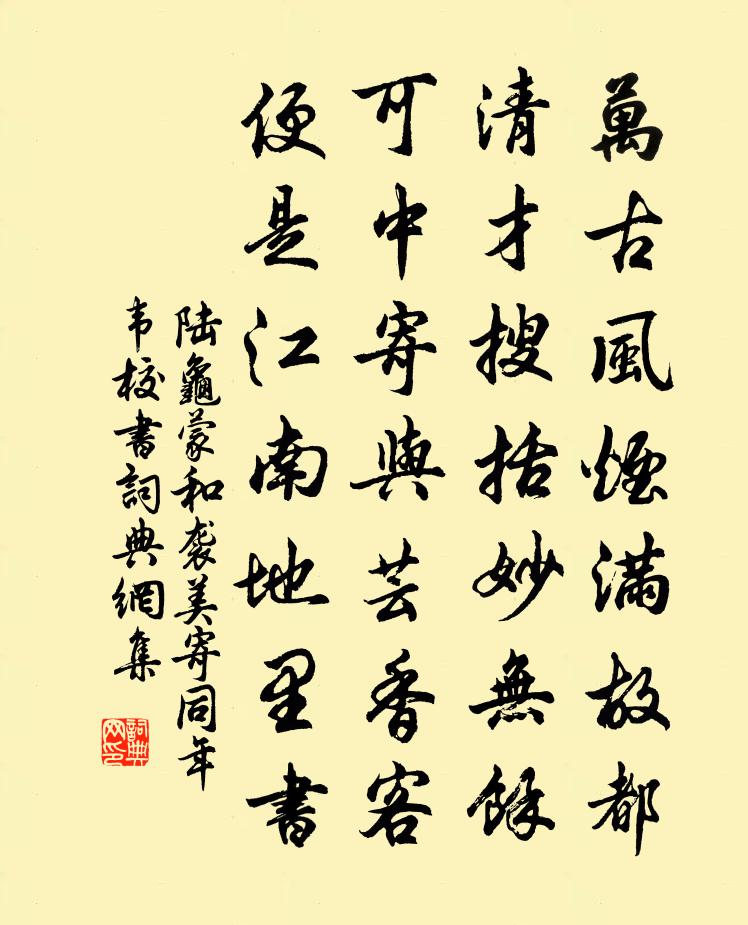 萬古風煙滿故都
清才搜括妙無餘
可中寄與芸香客
便是江南地里書
陸龜蒙和袭美寄同年
韦校書詞典網集
詞典網印